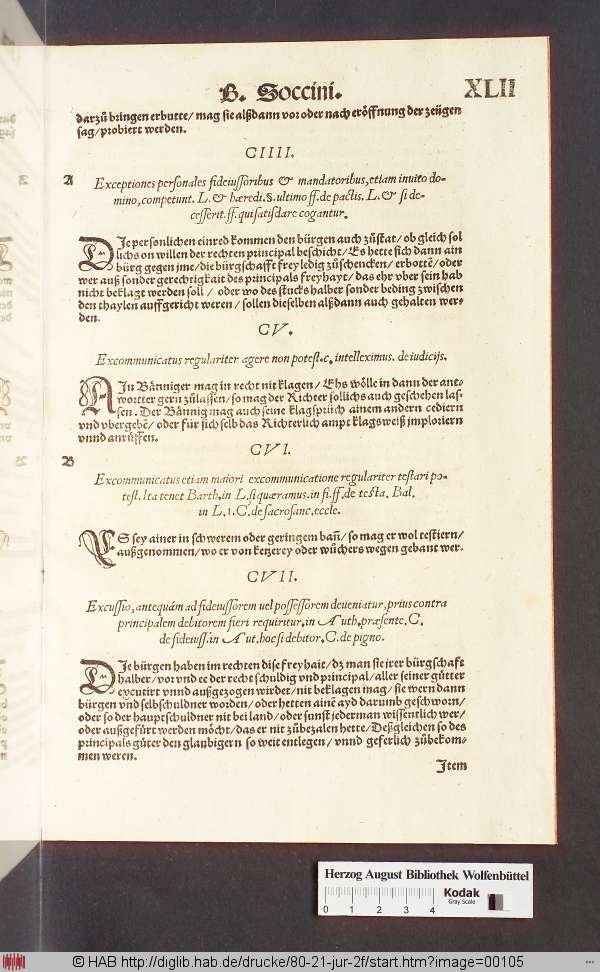 B. Soccini.
XLII
darzů bringen erbutte/ mag sie alßdann vor oder nach eröffnung der zeügen
sag/ probiert werden.
CIIII.
A
Exceptiones personales fideiussoribus & mandatoribus, etiam inuito do-
mino, competunt. L. & hæredi. §. ultimo ff. de pactis. L. & si de-
cesserit. ff. qui satisdare cogantur.
DIe personlichen einred kommen den bürgen auch zůstat/ ob gleich sol
lichs on willen der rechten principal beschicht/ Es hette sich dann ain
bürg gegen jme/ die bürgschafft frey ledig zůschencken/ erbottē/ oder
wer auß sonder gerechtigkait des principals freyhayt/ das ehr vber sein hab
nicht beklagt werden soll / oder wo des stucks halber sonder beding zwischen
den thaylen auffgericht weren / sollen dieselben alßdann auch gehalten wer-
den.
CV.
Excommunicatus regulariter agere non potest. c. intelleximus. de iudicijs.
AIn Bänniger mag in recht nit klagen/ Ehs wölle in dann der ant-
wortter gern zůlassen/ so mag der Richter sollichs auch geschehen las-
sen. Der Bännig mag auch seine klagsprüch ainem andern cediern
vnd vbergebē/ oder für sich selb das Richterlich ampt klagsweiß imploriern
vnnd anrüffen.
CVI.
B
Excommunicatus etiam maiori excommunicatione regulariter testari po-
test. Ita tenet Barth. in L. si quæramus. in fi. ff. de testa. Bal.
in L. 1. C. de sacrosanc. eccle.
ES sey ainer in schwerem oder geringem bañ/ so mag er wol testiern/
außgenommen/ wo er von ketzerey oder wůchers wegen gebant wer.
CVII.
Excussio, antequám ad fideiussorem uel possessorem deueniatur, prius contra
principalem debitorem fieri requiritur. in Auth. præsente. C.
de fideiuss. in Aut. hoc si debitor. C. de pigno.
DIe bürgen haben im rechten dise freyhait/ dz man sie jrer bürgschaft
halber/ vor vnd ee der recht schuldig vnd principal/ aller seiner gůtter
excutirt vnnd außgezogen wirdet/ nit beklagen mag/ sie wern dann
bürgen vnd selbschuldner worden/ oder hetten ainē ayd darumb geschworn/
oder so der hauptschuldner nit bei land/ oder sunst jederman wissentlich wer/
oder außgefürt werden möcht/ das er nit zůbezalen hette/ Deßgleichen so des
principals gůter den glaubigern so weit entlegen/ vnnd geferlich zůbekom-
men weren.
Item
Herzog August Bibliothek Wolfenbüttel
0 1 2 3 4
Kodak
Gray Scale
© HAB http://diglib.hab.de/drucke/80-21-jur-2f/start.htm?image=00105